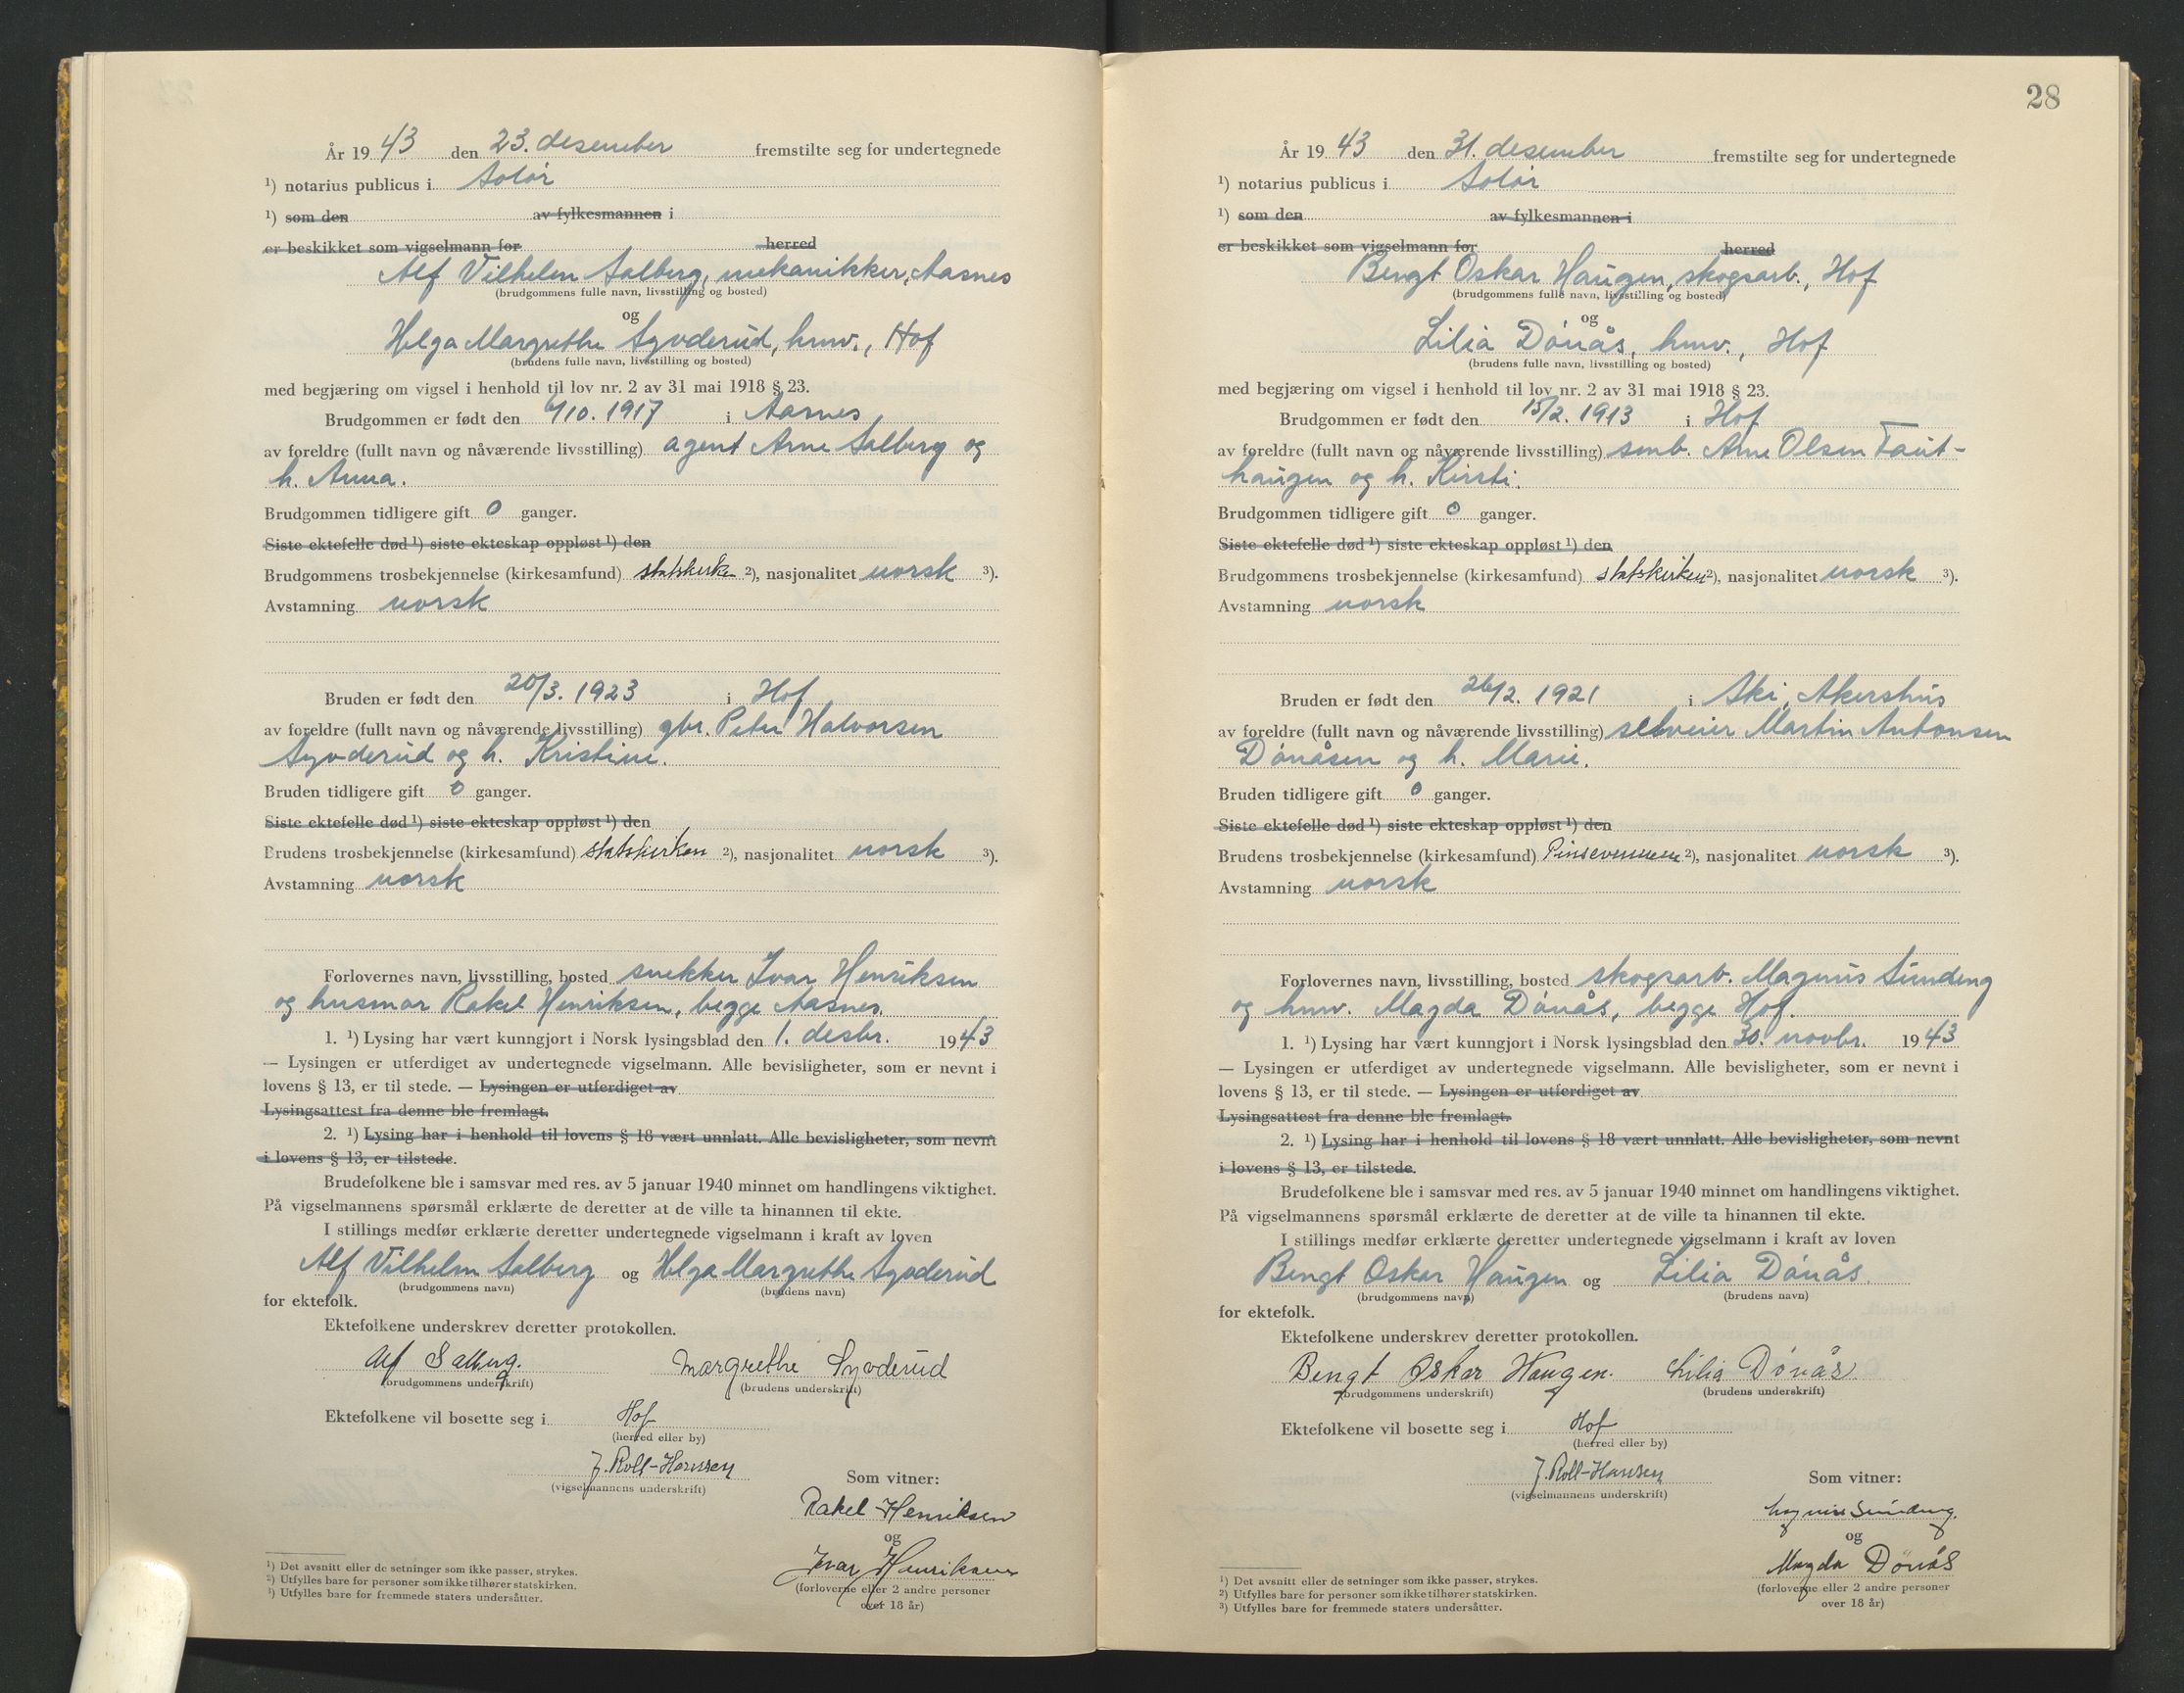 År 1943 den 23. desember fremstilte seg for undertegnede
¹) notarius publicus i Solør
¹) som den av fylkesmannen i
er beskikket som vigselmann for herred
Alf Vilhelm Solberg, mekanikker, Aasnes
(brudgommens fulle navn, livsstilling og bosted)
og
Helga Margrethe Agoderud, hmv., Hof
(brudens fulle navn, livsstilling og bosted)
med begjæring om vigsel i henhold til lov nr. 2 av 31 mai 1918 § 23.
Brudgommen er født den 6/10. 1917 i Aasnes
av foreldre (fullt navn og nåværende livsstilling) agent Arne Solberg og
h. Anna.
Brudgommen tidligere gift 0 ganger.
Siste ektefelle død ¹) siste ekteskap oppløst ¹) den
Brudgommens trosbekjennelse (kirkesamfund) statskirke ²), nasjonalitet norsk ³).
Avstamning norsk
Bruden er født den 20/3. 1923 i Hof
av foreldre (fullt navn og nåværende livsstilling) gbr. Peter Halvorsen
og h. Kristine.
Bruden tidligere gift 0 ganger.
Siste ektefelle død ¹) siste ekteskap oppløst ¹) den
Brudens trosbekjennelse (kirkesamfund) statskirken ²), nasjonalitet norsk ³).
Avstamning norsk
Forlovernes navn, livsstilling, bosted snekker Ivar Henriksen
og husmor Rakel Henriksen, begge Aasnes.
1. ¹) Lysing har vært kunngjort i Norsk lysingsblad den 1. desbr. 1943
— Lysingen er utferdiget av undertegnede vigselmann. Alle bevisligheter, som er nevnt i
lovens § 13, er til stede. — Lysingen er utferdiget av
Lysingsattest fra denne ble fremlagt.
2. ¹) Lysing har i henhold til lovens § 18 vært unnlatt. Alle bevisligheter, som nevnt
i lovens § 13, er tilstede.
Brudefolkene ble i samsvar med res. av 5 januar 1940 minnet om handlingens viktighet.
På vigselmannens spørsmål erklærte de deretter at de ville ta hinannen til ekte.
I stillings medfør erklærte deretter undertegnede vigselmann i kraft av loven
Alf Vilhelm Solberg og Helga Margrethe
(brudgommens navn) (brudens navn)
for ektefolk.
Ektefolkene underskrev deretter protokollen.
Alf Solberg. Margrethe
(brudgommens underskrift) (brudens underskrift)
Ektefolkene vil bosette seg i Hof
(herred eller by)
J. Roll-Hansen
(vigselmannens underskrift)
Som vitner:
Rakel Henriksen
og
Ivar Henriksen
(forloverne eller 2 andre personer
over 18 år)
¹) Det avsnitt eller de setninger som ikke passer, strykes.
²) Utfylles bare for personer som ikke tilhører statskirken.
³) Utfylles bare for fremmede staters undersåtter.
28
År 1943 den 31. desember fremstilte seg for undertegnede
¹) notarius publicus i Solør
¹) som den av fylkesmannen i
er beskikket som vigselmann for herred
Bengt Oskar Haugen, skogsarb., Hof
(brudgommens fulle navn, livsstilling og bosted)
og
Lilia Dónås, hmv., Hof
(brudens fulle navn, livsstilling og bosted)
med begjæring om vigsel i henhold til lov nr. 2 av 31 mai 1918 § 23.
Brudgommen er født den 15/2. 1913 i Hof
av foreldre (fullt navn og nåværende livsstilling) smb. Arne Olsen Taut-
haugen og h. Kirsti.
Brudgommen tidligere gift 0 ganger.
Siste ektefelle død ¹) siste ekteskap oppløst ¹) den
Brudgommens trosbekjennelse (kirkesamfund) statskirken ²), nasjonalitet norsk ³).
Avstamning norsk
Bruden er født den 26/2. 1921 i Ski, Akershus
av foreldre (fullt navn og nåværende livsstilling) selveier Martin Antonsen
Dónåsen og h. Marie.
Bruden tidligere gift 0 ganger.
Siste ektefelle død ¹) siste ekteskap oppløst ¹) den
Brudens trosbekjennelse (kirkesamfund) Pinsevennene ²), nasjonalitet norsk ³).
Avstamning norsk
Forlovernes navn, livsstilling, bosted skogsarb. Magnus Sundeng
og hmv. Magda Dónås, begge Hof.
1. ¹) Lysing har vært kunngjort i Norsk lysingsblad den 30. novbr. 1943
— Lysingen er utferdiget av undertegnede vigselmann. Alle bevisligheter, som er nevnt i
lovens § 13, er til stede. — Lysingen er utferdiget av
Lysingsattest fra denne ble fremlagt.
2. ¹) Lysing har i henhold til lovens § 18 vært unnlatt. Alle bevisligheter, som nevnt
i lovens § 13, er tilstede.
Brudefolkene ble i samsvar med res. av 5 januar 1940 minnet om handlingens viktighet.
På vigselmannens spørsmål erklærte de deretter at de ville ta hinannen til ekte.
I stillings medfør erklærte deretter undertegnede vigselmann i kraft av loven
Bengt Oskar Haugen og Lilia Dónås.
(brudgommens navn) (brudens navn)
for ektefolk.
Ektefolkene underskrev deretter protokollen.
Bengt Oskar Haugen. Lilia Dónås
(brudgommens underskrift) (brudens underskrift)
Ektefolkene vil bosette seg i Hof
(herred eller by)
J. Roll-Hansen
(vigselmannens underskrift)
Som vitner:
Magnus Sundeng.
og
Magda Dónås
(forloverne eller 2 andre personer
over 18 år)
¹) Det avsnitt eller de setninger som ikke passer, strykes.
²) Utfylles bare for personer som ikke tilhører statskirken.
³) Utfylles bare for fremmede staters undersåtter.